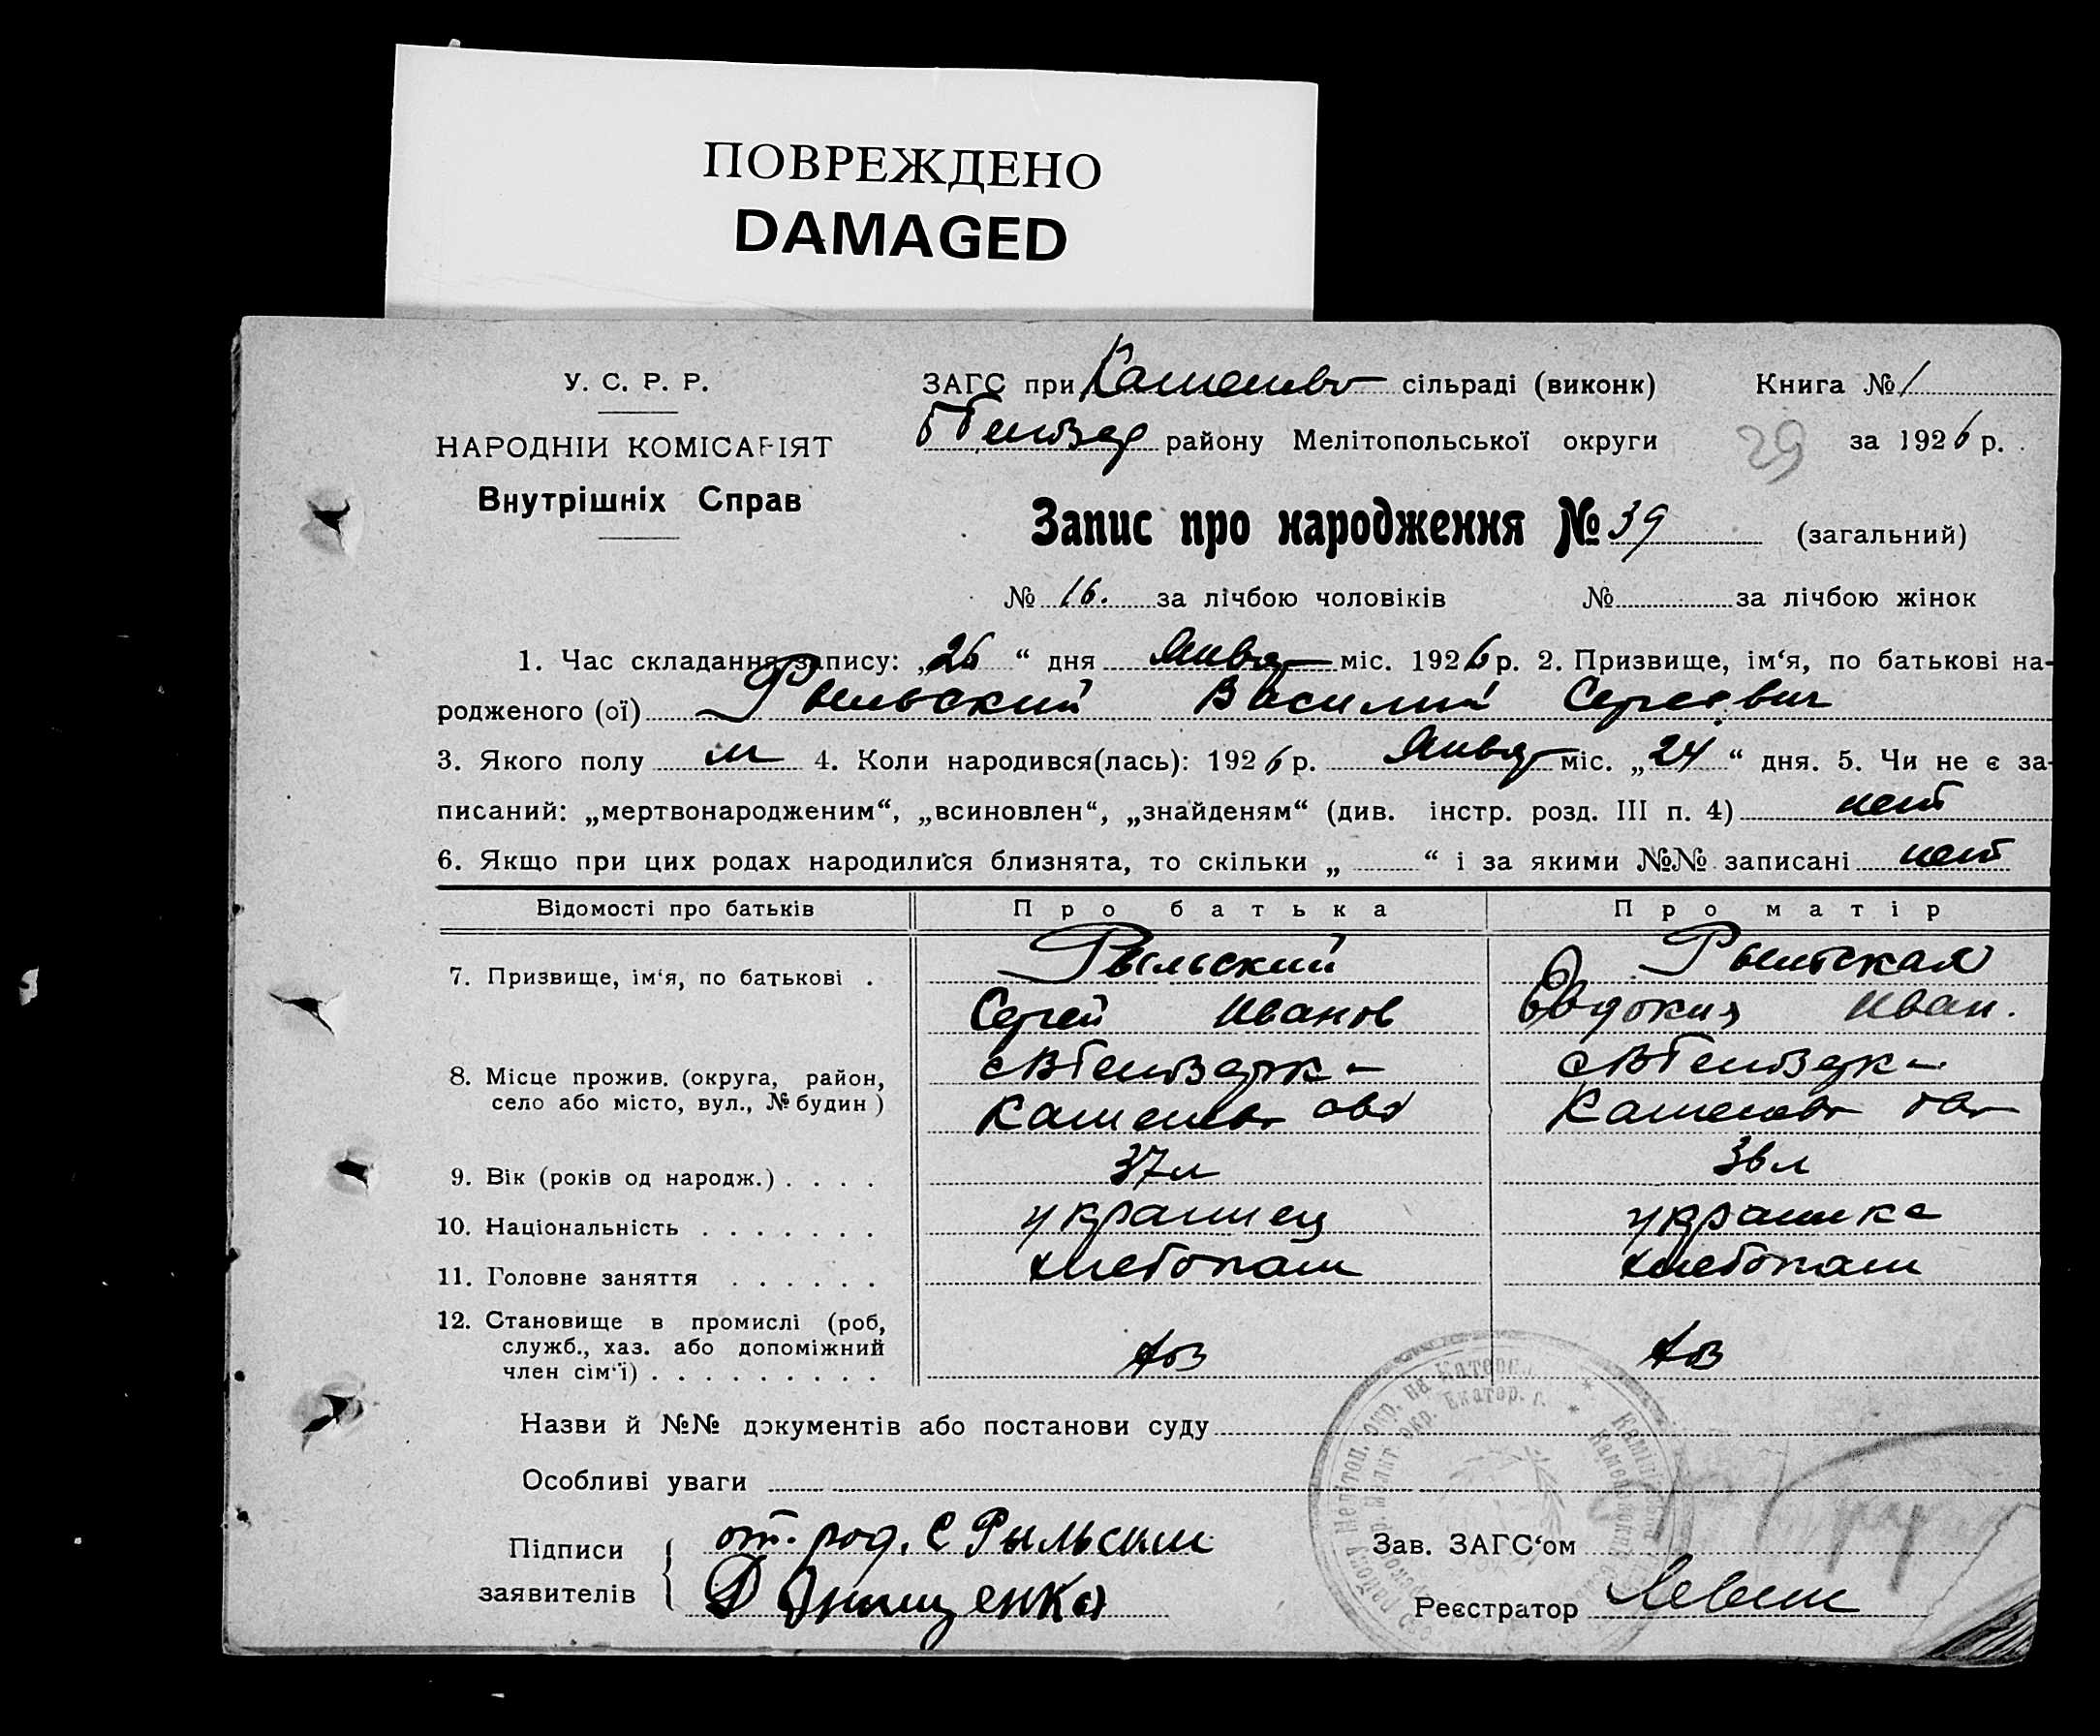 ПОВРЕЖДЕНО
DAMAGED
У. С. Р. Р.
НАРОДНІЙ КОМІСАРІЯТ
Внутрішніх Справ
ЗАГС при Каменев сільраді (виконк) Книга № 1
району Мелітопольської округи 29 за 1926 р.
Запис про народження № 39 (загальний)
№ 16. за лічбою чоловіків № за лічбою жінок
1. Час складання запису: „26“ дня Январ міс. 1926 р. 2. Призвище, ім‘я, по батькові на-
родженого (ої) Рыльский Василий Сергеевич
3. Якого полу м 4. Коли народився(лась): 1926 р. Январ міс. „24“ дня. 5. Чи не є за-
писаний: „мертвонародженим“, „всиновлен“, „знайденям“ (див. інстр. розд. III п. 4) нет
6. Якщо при цих родах народилися близнята, то скільки „ “ і за якими №№ записані нет
Відомості про батьків Про батька Про матір
7. Призвище, ім‘я, по батькові . Рыльский Рыльская
Сергей Иванов Евдокия Иван.
8. Місце прожив. (округа, район,
село або місто, вул., № будин)
Каменев Каменев
9. Вік (років од народж.) . . . . 37 л 36 л
10. Національність . . . . . . . украинец украинка
11. Головне заняття . . . . . . хлебопаш хлебопаш
12. Становище в промислі (роб,
служб., хаз. або допоміжний
член сім‘ї) . . . . . . . . . хоз хоз
Назви й №№ документів або постанови суду
Особливі уваги
Підписи
заявителів
от. род. С Рыльский
Д Онищенко
Зав. ЗАГС‘ом
Реєстратор Левин